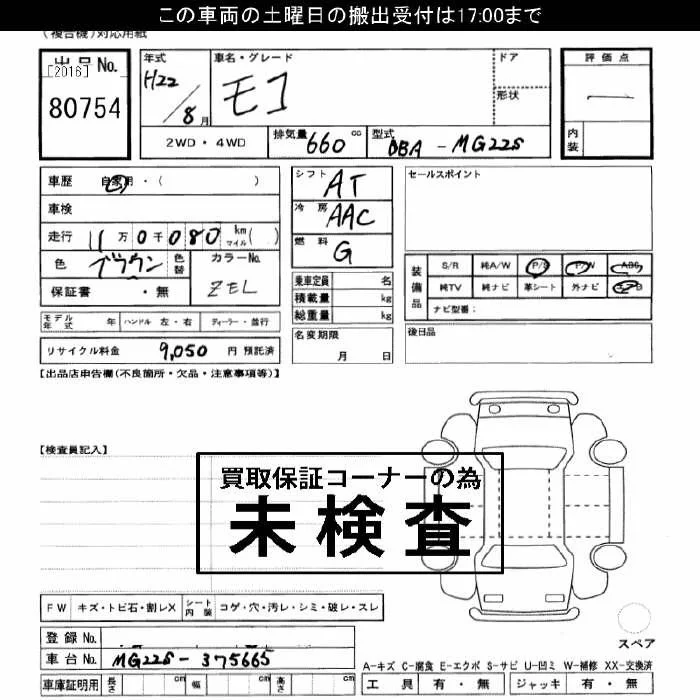 この車両の土曜日の搬出受付は17:00まで
(複合機)対応用紙
出品No.
[2016]
80754
年式
H22/8月
車名・グレード
モコ
ドア
形状
評価点
―
内装
2WD・4WD
排気量 660 cc
型式 DBA-MG22S
車歴 自家用・( )
車検
走行 11万0千080 km マイル( )
色 ブラウン 色替
カラーNo. ZEL
保証書 ・無
モデル年式 年 ハンドル 左・右 ディーラー・並行
リサイクル料金 9,050 円 預託済
シフト AT
冷房 AAC
燃料 G
乗車定員 名
積載量 kg
総重量 kg
名変期限
月 日
セールスポイント
装備品
S/R 純A/W P/S P/W ABS
純TV 純ナビ 革シート 外ナビ
ナビ型番:
後日品
【出品店申告欄(不良箇所・欠品・注意事項等)】
【検査員記入】
買取保証コーナーの為
未検査
FW キズ・トビ石・割レX シート内装 コゲ・穴・汚レ・シミ・破レ・スレ
登録No.
車台No. MG22S-375665
車庫証明用 長さ cm 幅 cm 高さ cm
スペア
A-キズ C-腐食 E-エクボ S-サビ U-凹ミ W-補修 XX-交換済
工具 有・無 ジャッキ 有・無